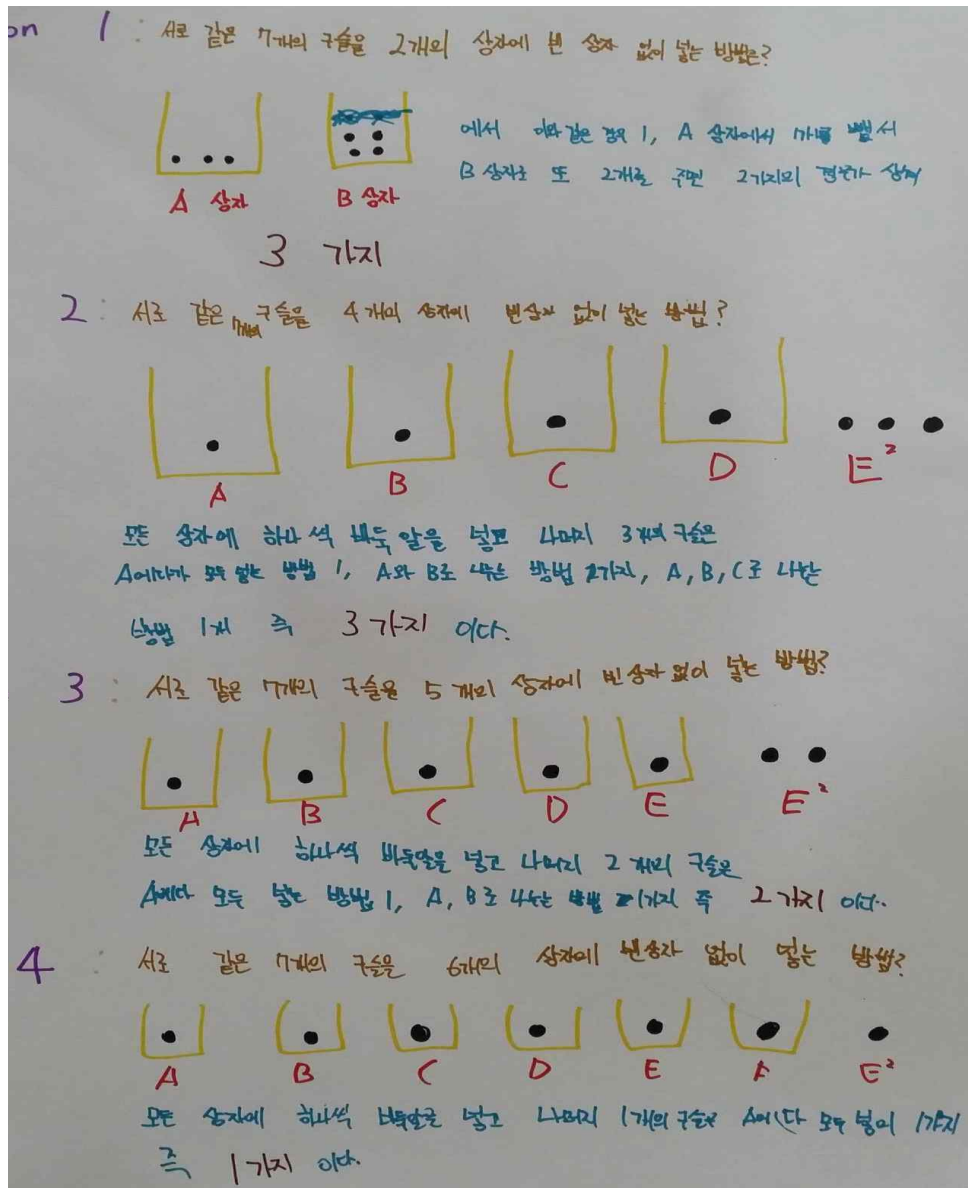 on 1 : 서로 같은 7개의 구슬을 2개의 상자에 빈 상자 없이 넣는 방법은?
에서 이와 같은 경우 1, A 상자에서 1개를 빼서
B 상자로 또 2개를 주면 2가지의 경우가
A 상자
B 상자
3 가지
2 : 서로 같은 7개의 구슬을 4개의 상자에 빈상자 없이 넣는 방법?
A B C D E²
모든 상자에 하나 씩 바둑알을 넣고 나머지 3개의 구슬은
A에다가 모두 넣는 방법 1, A와 B로 나누는 방법 2가지, A, B, C로 나누는
방법 1개 즉 3가지 이다.
3 : 서로 같은 7개의 구슬을 5개의 상자에 빈상자 없이 넣는 방법?
A B C D E E²
모든 상자에 하나씩 바둑알을 넣고 나머지 2개의 구슬은
A에다 모두 넣는 방법 1, A, B로 나누는 방법 1가지 즉 2가지 이다.
4 : 서로 같은 7개의 구슬을 6개의 상자에 빈상자 없이 넣는 방법?
A B C D E F E²
모든 상자에 하나씩 바둑알을 넣고 나머지 1개의 구슬은 A에다 모두 1가지
즉 1가지 이다.